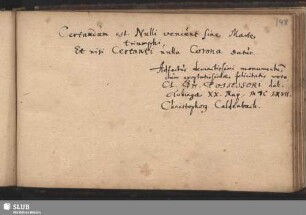 148
Certandum est. Nulli veniunt sine Marte
triumphi,
Et nisi Certanti nulla Corona datur.
Affectus devotissimi monumentum
cum apprecatione felicitatis
Cl. Dn. POSSESSORI dab.
Tubingæ XX. Aug.
Christophorus Caldenbach.
SLUB